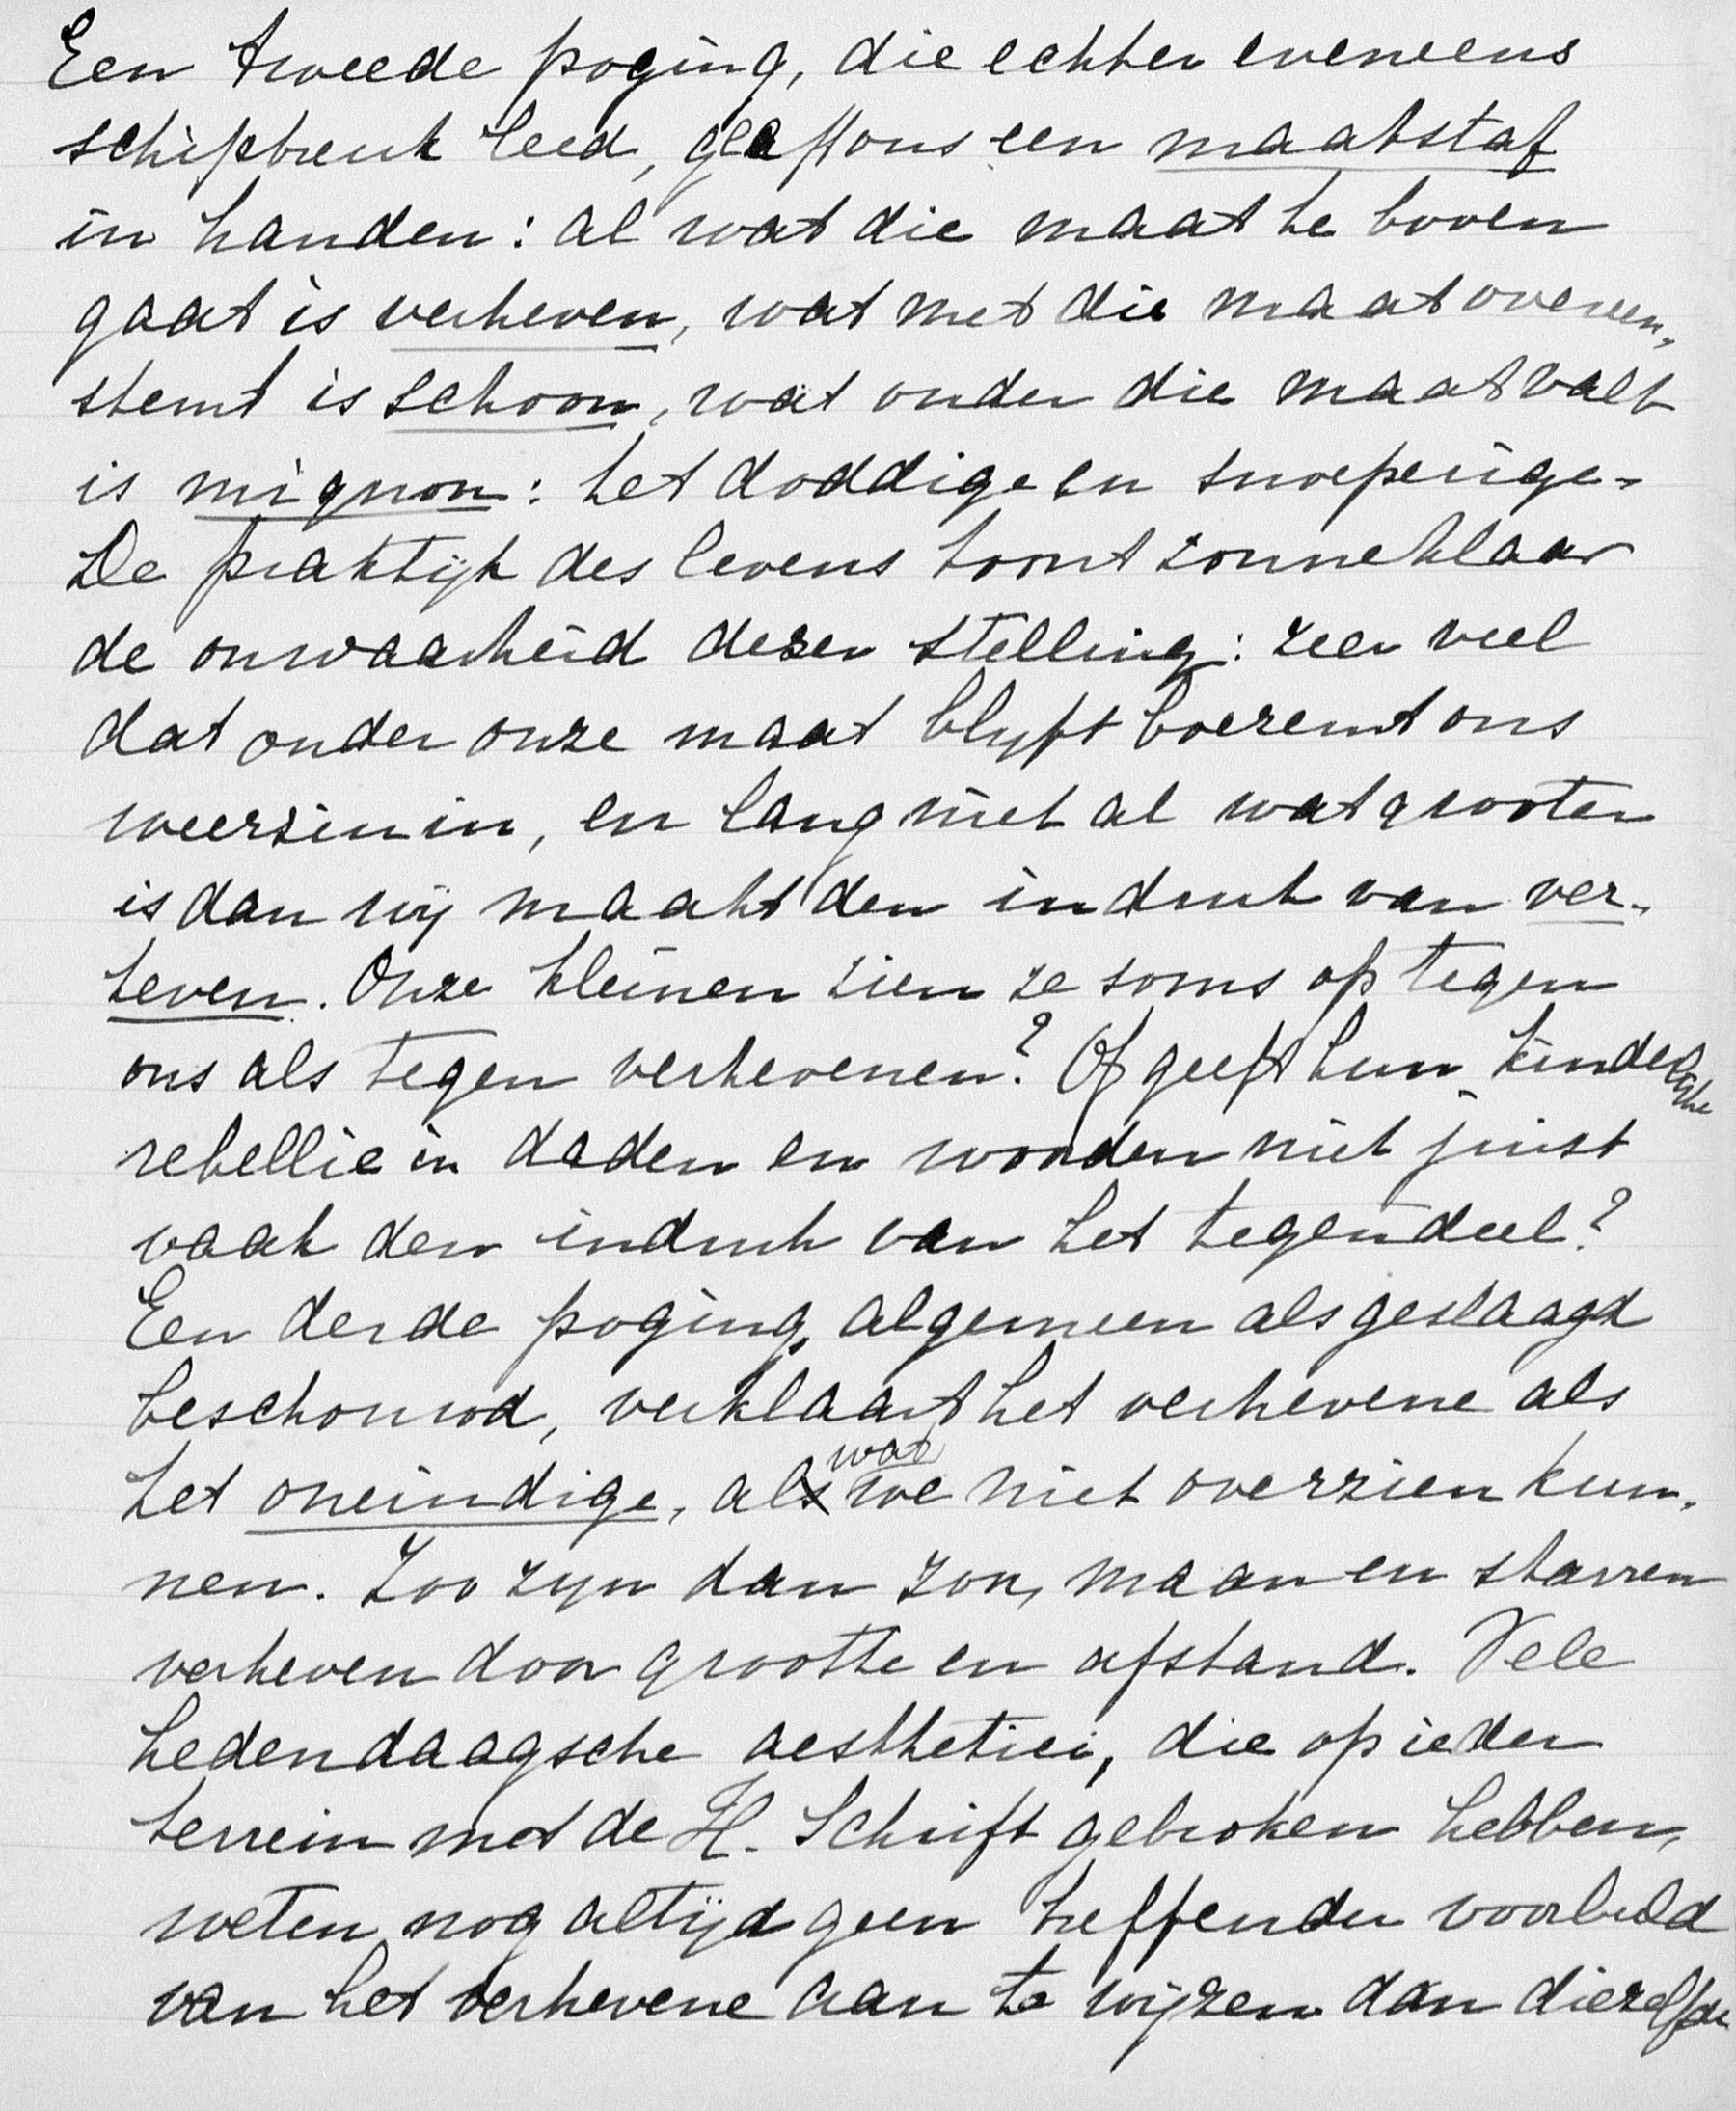 Een tweede poging, die echter eveneens
schipbreuk leed, geeft ons een maatstaf
in handen: al wat die maat te boven
gaat is verheven, wat met die maat overeen-
stemt is schoon, wat onder die maat valt
is mignon: het doddige en snoeperige.
De praktijk des levens toont zonneklaar
de onwaarheid dezer stelling: zeer veel
dat onder onze maat blyft boezemt ons
weerzin in, en lang niet al wat grooter
is dan wij maakt den indruk van ver-
heven. Onze kleinen zien ze soms op tegen
ons als tegen verhevenen? Of geeft hun kinderlyke
rebellie in daden en woorden niet juist
vaak den indruk van het tegendeel?
Een derde poging, algemeen als geslaagd
beschouwd, verklaart het verhevene als
het oneindige, al wat we niet overzien kun-
nen. Zoo zyn dan zon, maan en starren
verheven door grootte en afstand. Vele
hedendaagsche aesthetici, die op ieder
terrein met de H. Schrift gebroken hebben,
weten nog altijd geen treffender voorbeeld
van het verhevene aan te wijzen dan diezelfde